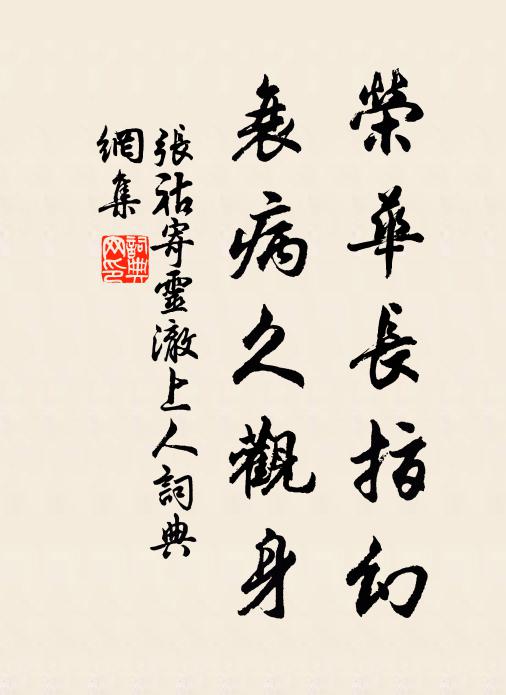 榮華長指幻
衰病久觀身
張祜寄靈澈上人詞典
網集
詞典網印